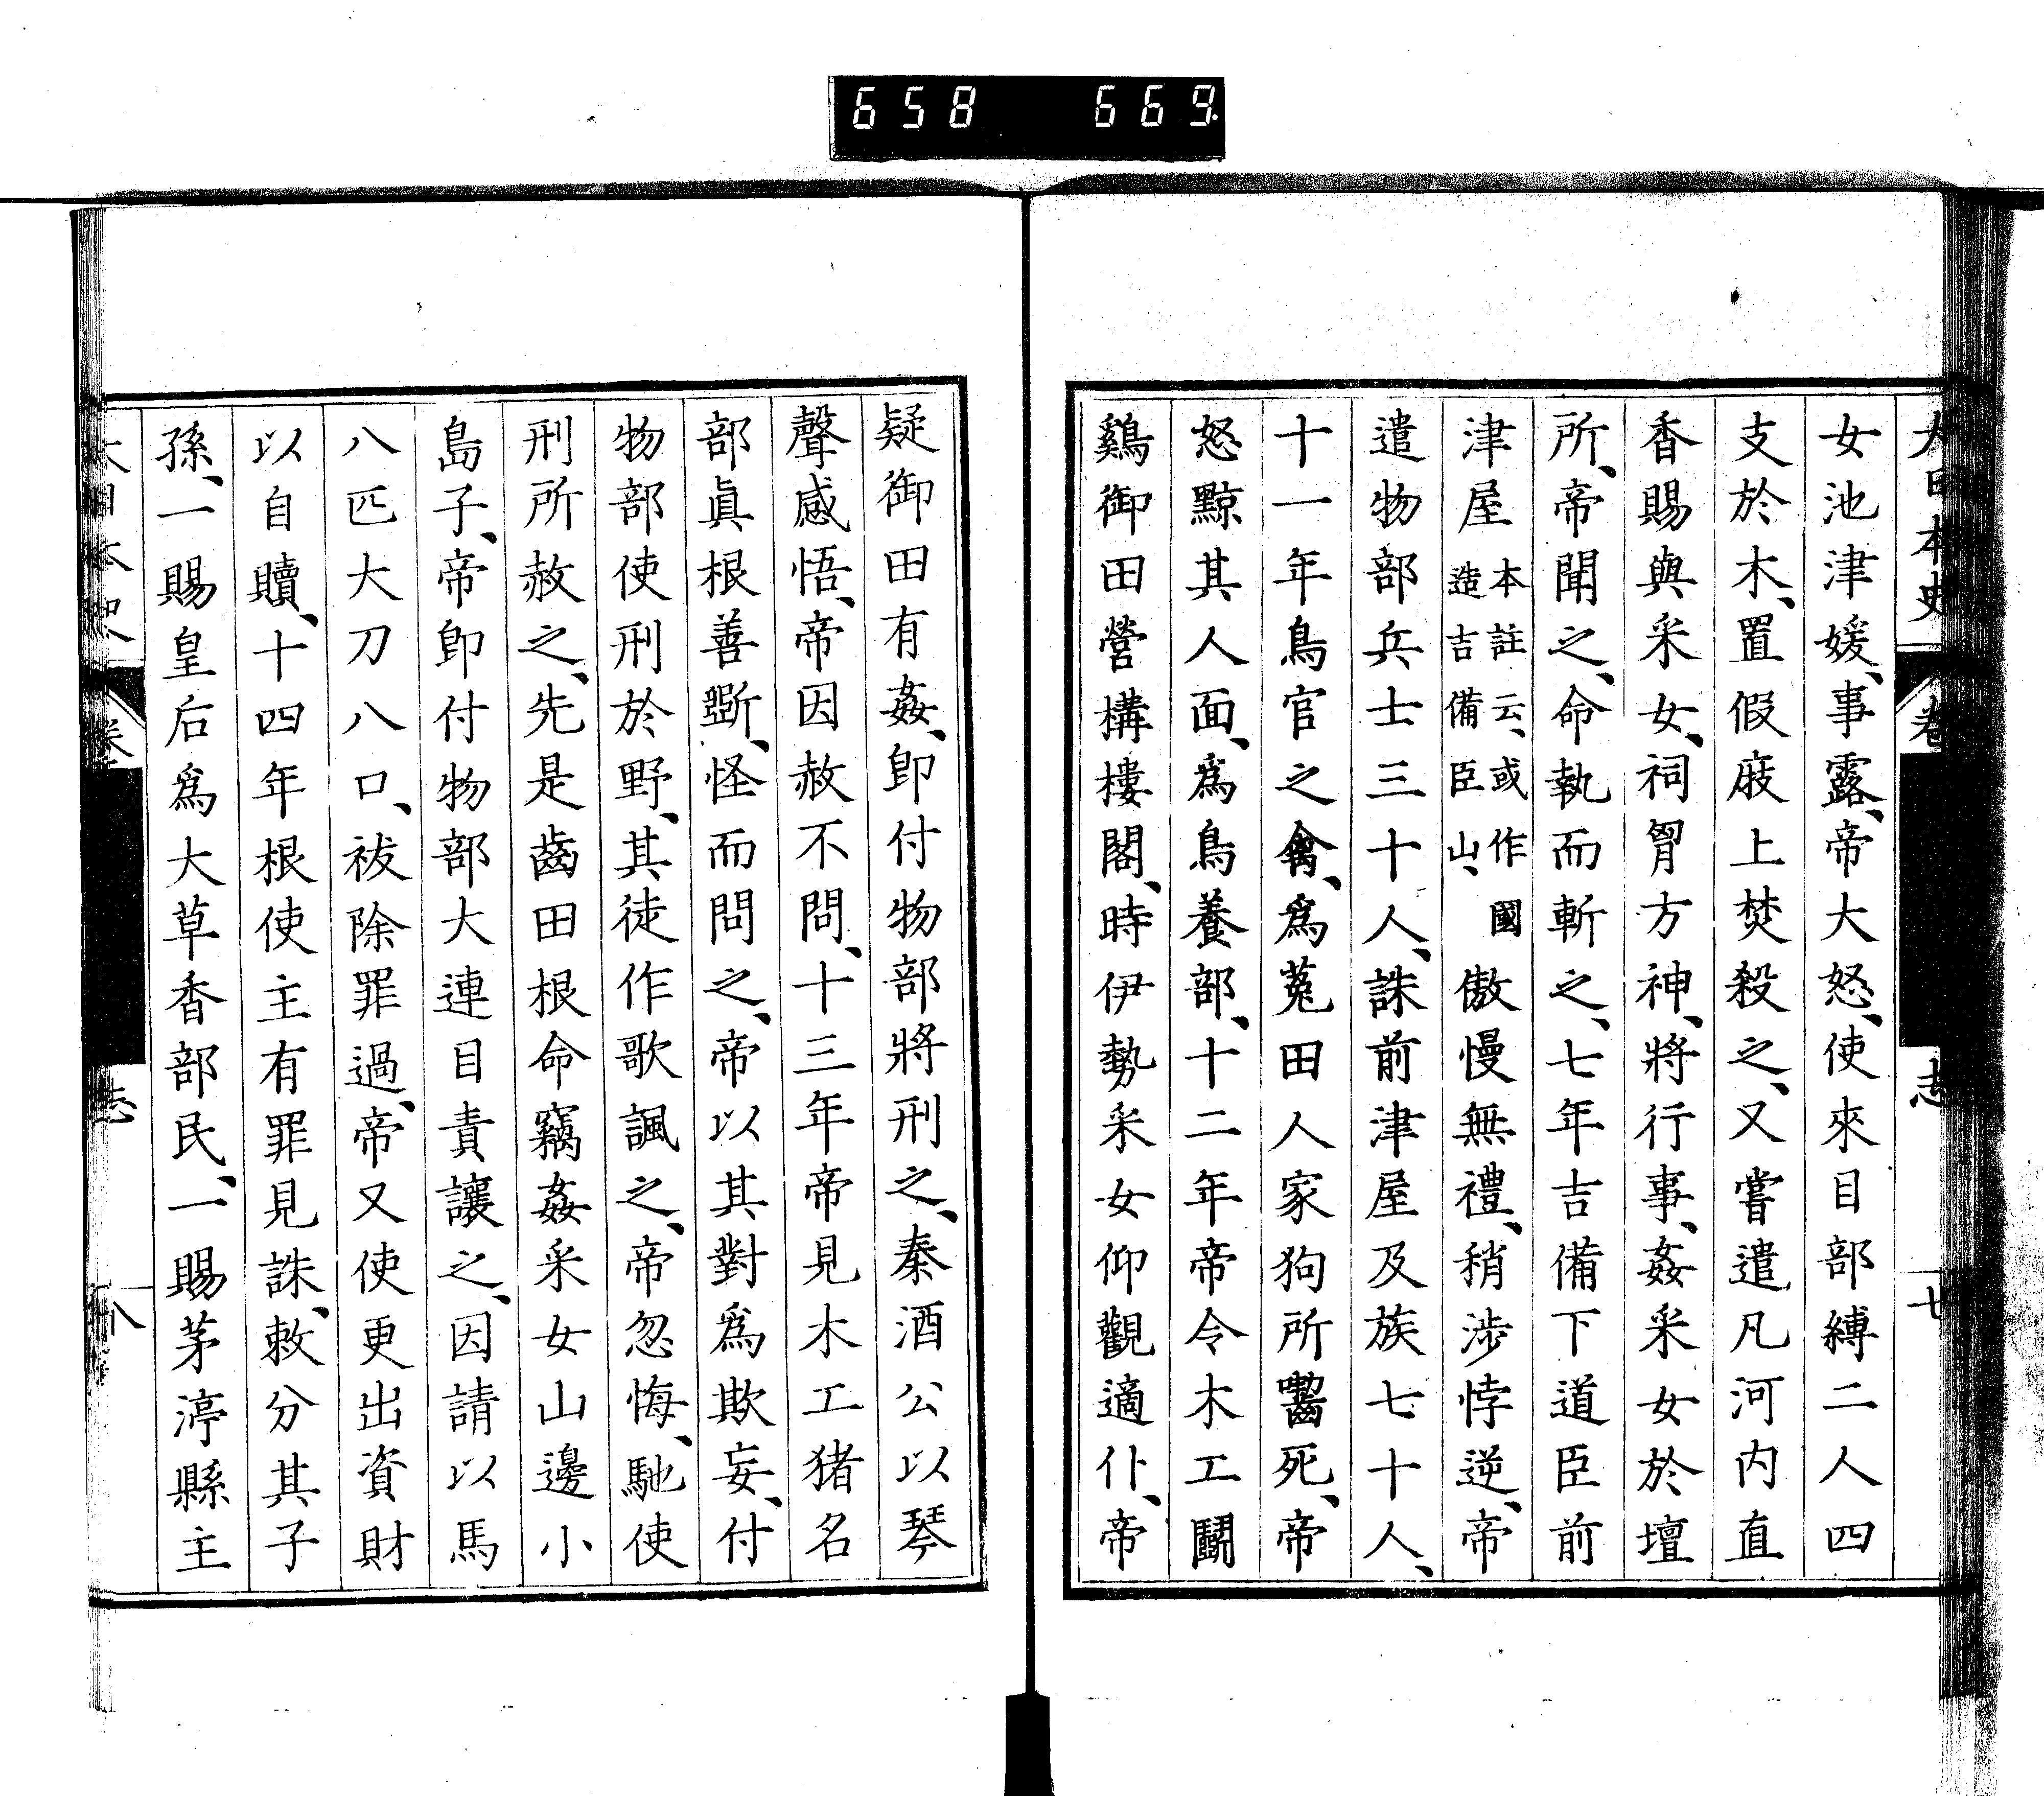 658 669
大日本史 卷 志 七
女池津媛、事露、帝大怒、使來目部縛二人四
支於木、置假庪上焚殺之、又嘗遣凡河内直
香賜與采女、祠胷方神、將行事、姦采女於壇
所、帝聞之、命執而斬之、七年吉備下道臣前
津屋本註云、或作國造吉備臣山、傲慢無禮、稍涉悖逆、帝
遣物部兵士三十人、誅前津屋及族七十人、
十一年鳥官之禽、爲菟田人家狗所囓死、帝
怒黥其人面、爲鳥養部、十二年帝令木工鬭
鷄御田營構樓閣、時伊勢采女仰觀適仆、帝
疑御田有姦、卽付物部將刑之、秦酒公以琴
聲感悟、帝因赦不問、十三年帝見木工猪名
部眞根善斲、怪而問之、帝以其對爲欺妄、付
物部使刑於野、其徒作歌諷之、帝忽悔、馳使
刑所赦之、先是齒田根命竊姦采女山邊小
島子、帝卽付物部大連目責讓之、因請以馬
八匹大刀八口、祓除罪過、帝又使更出資財
以自贖、十四年根使主有罪見誅、敕分其子
孫、一賜皇后爲大草香部民、一賜茅渟縣主
大日本史 卷 志 八